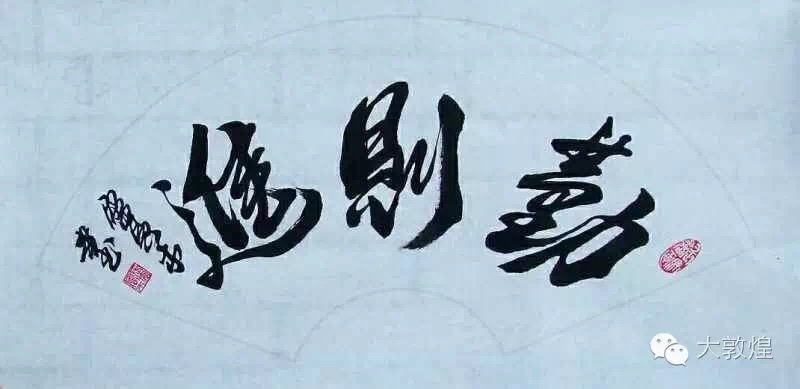 勤則進
大敦煌